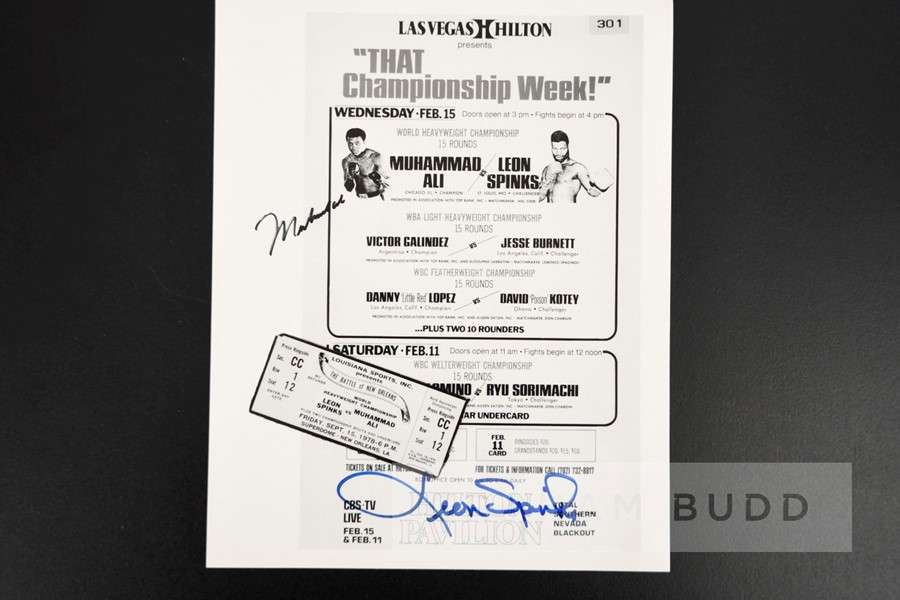 LAS VEGAS HILTON
301
presents
"THAT
Championship Week!"
WEDNESDAY • FEB. 15 Doors open at 3 pm • Fights begin at 4 pm
WORLD HEAVYWEIGHT CHAMPIONSHIP
15 ROUNDS
MUHAMMAD ALI VS LEON SPINKS
CHICAGO, ILL • CHAMPION ST. LOUIS, MO • CHALLENGER
PROMOTED IN ASSOCIATION WITH TOP RANK, INC
WBA LIGHT-HEAVYWEIGHT CHAMPIONSHIP
15 ROUNDS
VICTOR GALINDEZ VS JESSE BURNETT
Argentina • Champion Los Angeles, Calif. • Challenger
WBC FEATHERWEIGHT CHAMPIONSHIP
15 ROUNDS
DANNY "Little Red" LOPEZ VS DAVID "Poison" KOTEY
Los Angeles, Calif. • Champion Ghana • Challenger
...PLUS TWO 10 ROUNDERS
SATURDAY • FEB. 11 Doors open at 11 am • Fights begin at 12 noon
WBC WELTERWEIGHT CHAMPIONSHIP
15 ROUNDS
OMINO VS RYU SORIMACHI
Tokyo • Challenger
AR UNDERCARD
Press Ringside
Sec. CC
Row 1
Seat 12
LOUISIANA SPORTS, INC.
presents
THE BATTLE of NEW ORLEANS
WORLD
HEAVYWEIGHT CHAMPIONSHIP
LEON SPINKS vs MUHAMMAD ALI
FRIDAY, SEPT. 15, 1978 - 6 P.M.
SUPERDOME - NEW ORLEANS, LA.
Press Ringside
Sec. CC
Row 1
Seat 12
FEB. 11 CARD
TICKETS ON SALE AT
FOR TICKETS & INFORMATION CALL (702) 732-
Leon Spinks
CBS-TV
LIVE
FEB. 15
& FEB. 11
HILTON
PAVILION
TOTAL
SOUTHERN
NEVADA
BLACKOUT
BUDD